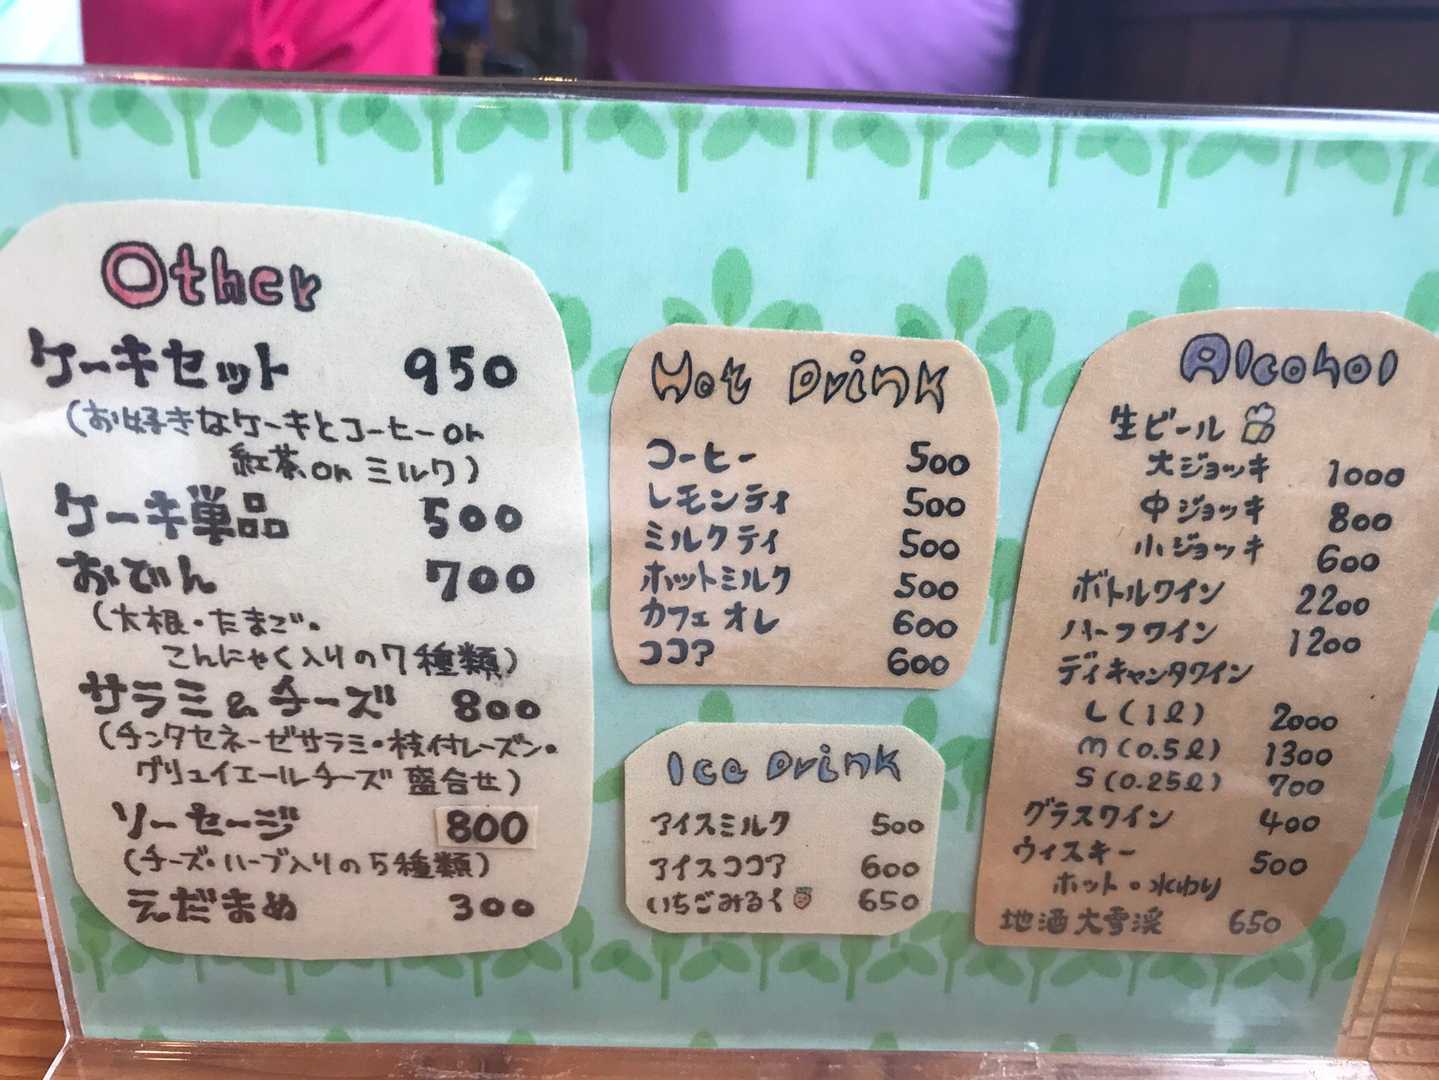 Other
ケーキセット 950
(お好きなケーキとコーヒー or
紅茶 or ミルク)
ケーキ単品 500
おでん 700
(大根・たまご・
こんにゃく入りの7種類)
サラミ&チーズ 800
(チンタセネーゼサラミ・枝付レーズン・
グリュイエールチーズ 盛合せ)
ソーセージ 800
(チーズ・ハーブ入りの5種類)
えだまめ 300
Hot Drink
コーヒー 500
レモンティ 500
ミルクティ 500
ホットミルク 500
カフェオレ 600
ココア 600
Ice Drink
アイスミルク 500
アイスココア 600
いちごみるく 650
Alcohol
生ビール
大ジョッキ 1000
中ジョッキ 800
小ジョッキ 600
ボトルワイン 2200
ハーフワイン 1200
ディキャンタワイン
L (1ℓ) 2000
m (0.5ℓ) 1300
S (0.25ℓ) 700
グラスワイン 400
ウィスキー 500
ホット・水わり
地酒大雪渓 650